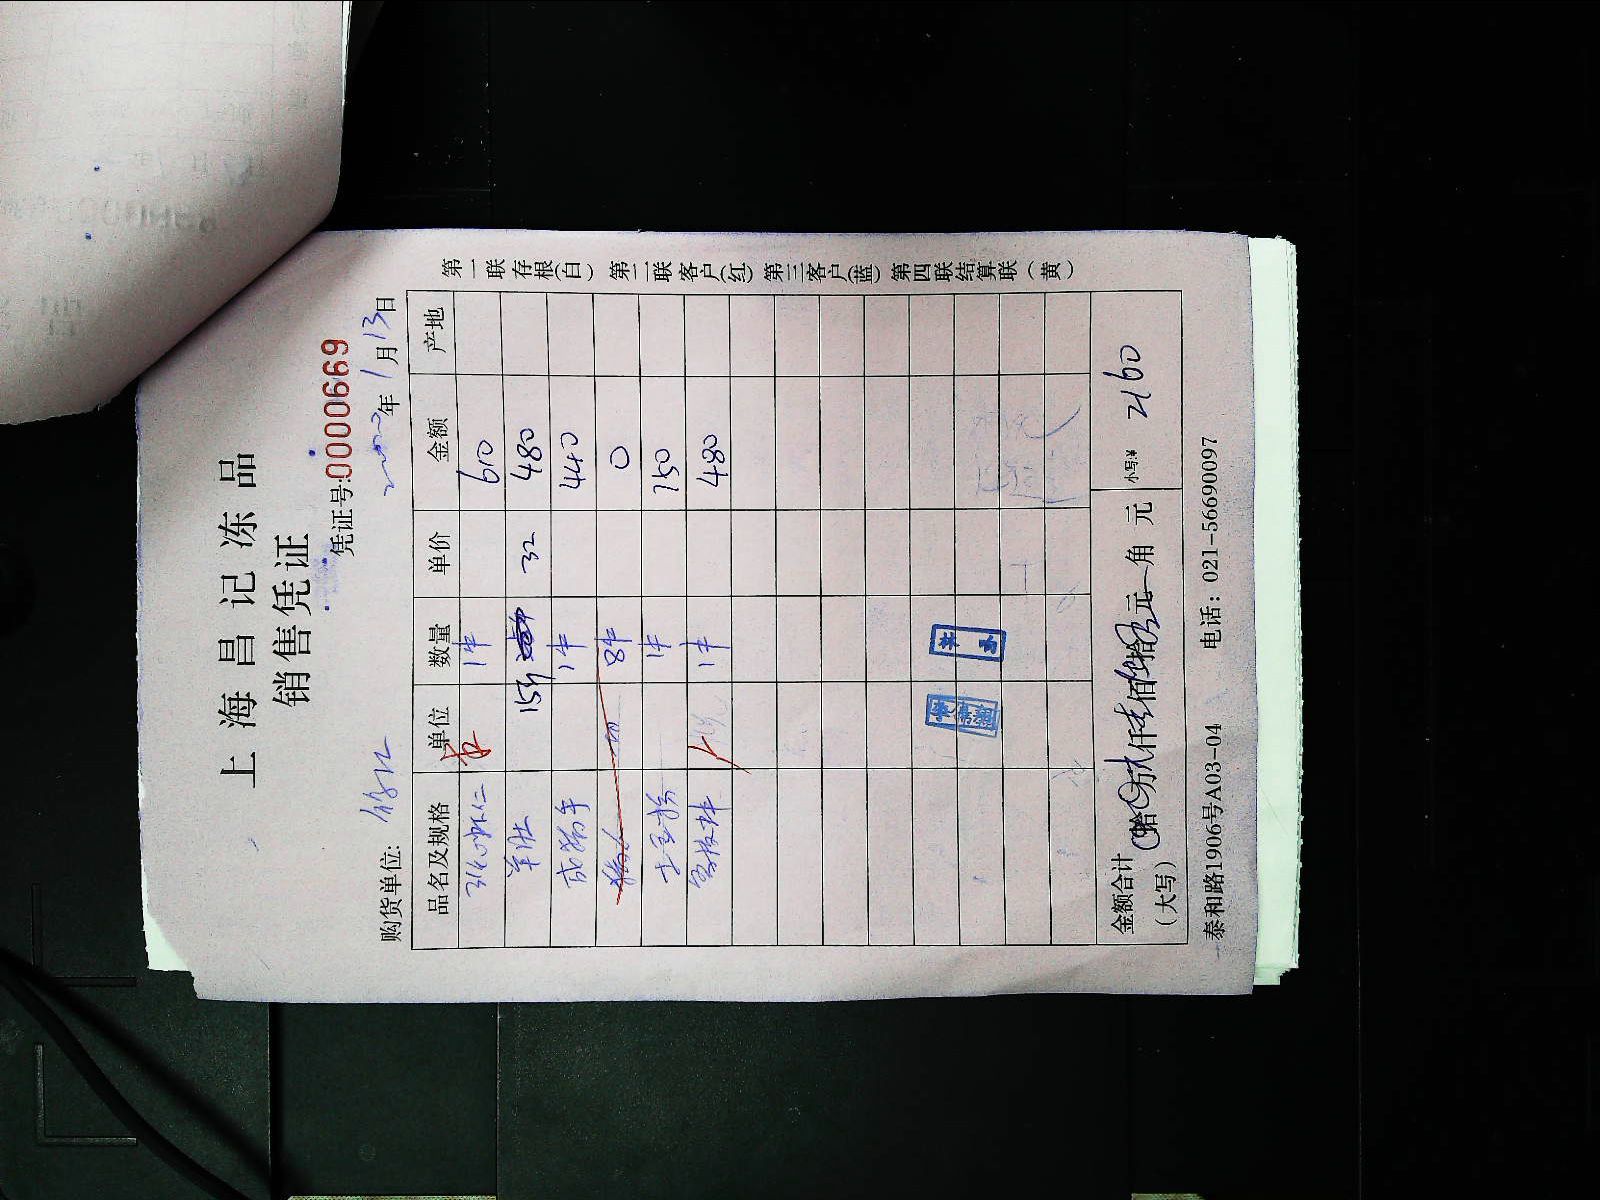 上海昌记冻品
销售凭证
凭证号:0000669
购货单位:
年1月13日
品名及规格 单位 数量 单价 金额 产地
31/40虾仁 1件 610
羊肚 15斤 32 480
1件 440
8件 0
1件 150
1件 480
金额合计
(大写)
拾 万 仟 佰 拾 元 角 元
小写:¥ 2160
泰和路1906号A03-04 电话：021-56690097
第一联存根(白) 第二联客户(红) 第三客户(蓝) 第四联结算联(黄)